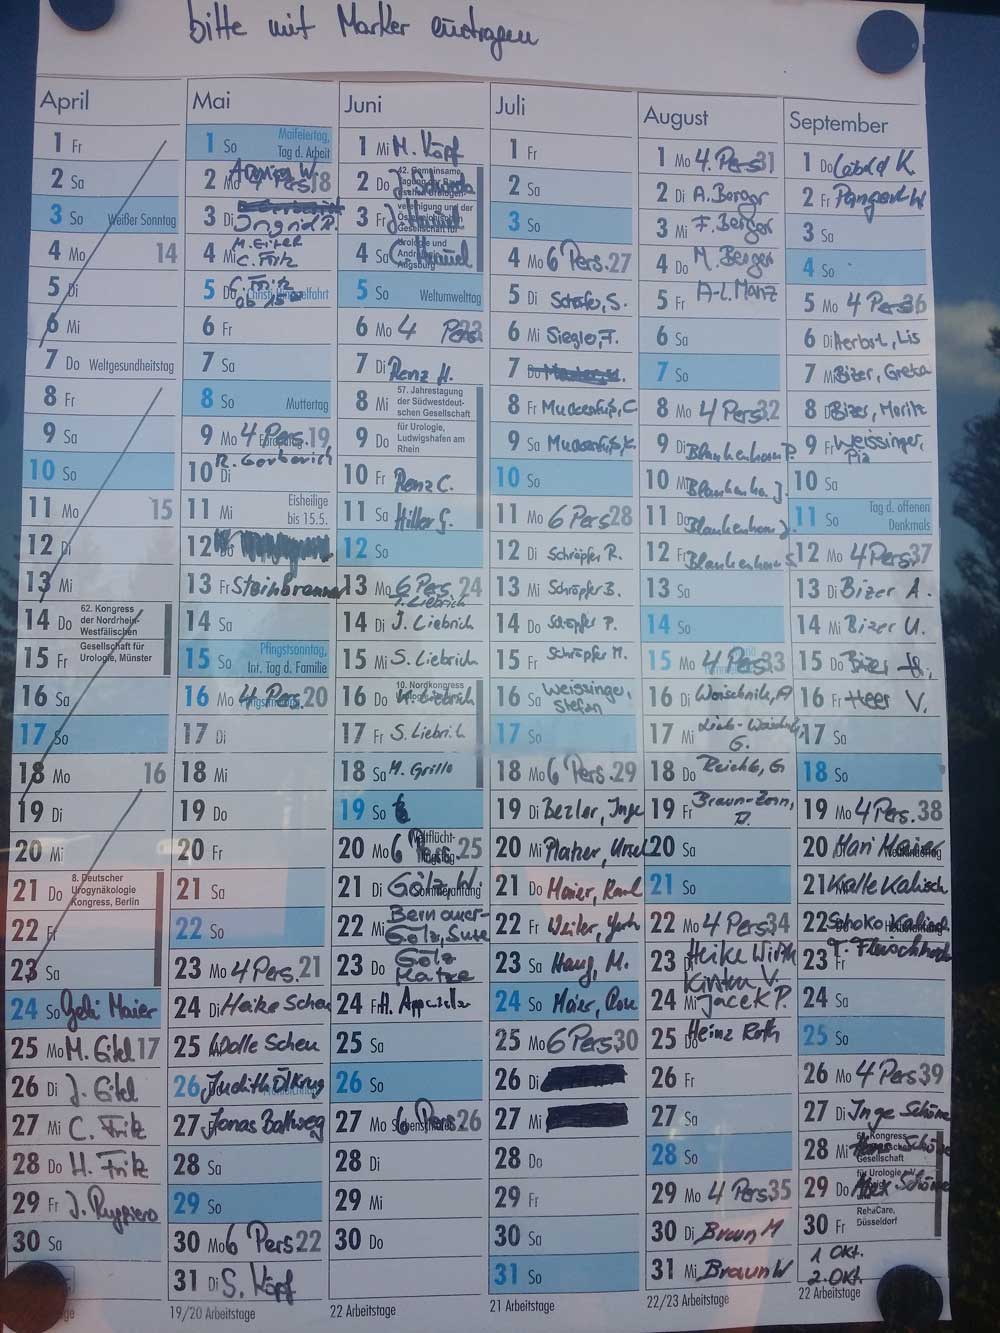 bitte mit Marker eintragen
April
1 Fr
2 Sa
3 So Weißer Sonntag
4 Mo 14
5 Di
6 Mi
7 Do Weltgesundheitstag
8 Fr
9 Sa
10 So
11 Mo 15
12 Di
13 Mi
14 Do 62. Kongress
der Nordrhein-
Westfälischen
15 Fr Gesellschaft für
Urologie, Münster
16 Sa
17 So
18 Mo 16
19 Di
20 Mi
21 Do 8. Deutscher
Urogynäkologie
Kongress, Berlin
22 Fr
23 Sa
24 So Gabi Maier
25 Mo M. Eitel 17
26 Di J. Eitel
27 Mi C. Fritz
28 Do H. Fritz
29 Fr J. Ruggiero
30 Sa
Mai
1 So Maifeiertag,
Tag d. Arbeit
2 Mo 4 Pers 18
3 Di Ingrid R.
4 Mi M. Eitel
C. Fritz
5 Do C. Fritz
ab 15
6 Fr
7 Sa
8 So Muttertag
9 Mo 4 Pers. 19
10 Di
11 Mi Eisheilige
bis 15.5.
12
13 Fr Steinbrenner
14 Sa
15 So Pfingstsonntag,
Int. Tag d. Familie
16 Mo 4 Pers. 20
17 Di
18 Mi
19 Do
20 Fr
21 Sa
22 So
23 Mo 4 Pers. 21
24 Di Heike Scheu
25 Wolle Scheu
26 Judith Ölkrug
27 Jonas Bottweg
28 Sa
29 So
30 Mo 6 Pers 22
31 Di S. Köpf
19/20 Arbeitstage
Juni
1 Mi M. Köpf
2 Do 42. Gemeinsame
3 Fr
4 Sa
5 So Weltumwelttag
6 Mo 4 Pers 23
7 Di Renz H.
8 Mi 57. Jahrestagung
der Südwestdeut-
schen Gesellschaft
9 Do für Urologie,
Ludwigshafen am
Rhein
10 Fr Renz C.
11 Sa Hiller G.
12 So
13 Mo 6 Pers. 24
J. Liebrich
14 Di J. Liebrich
15 Mi S. Liebrich
16 Do 10. Nordkongress
Liebrich
17 Fr S. Liebrich
18 Sa M. Grillo
19 So
20 Mo 6 Pers. 25
21 Di Gölz W.
22 Mi Bernauer-
Gölz, Suse
23 Do Gölz
24 Fr
25 Sa
26 So
27 Mo 6 Pers 26
28 Di
29 Mi
30 Do
22 Arbeitstage
Juli
1 Fr
2 Sa
3 So
4 Mo 6 Pers. 27
5 Di Schäfer, S.
6 Mi Siegle, F.
7 Do
8 Fr Muckenfuß, C
9 Sa Muckenfuß, K.
10 So
11 Mo 6 Pers 28
12 Di Schröpfer R.
13 Mi Schröpfer B.
14 Do Schröpfer P.
15 Fr Schröpfer M.
16 Sa Weissinger,
Stefan
17 So
18 Mo 6 Pers. 29
19 Di Bezler, Inge
20 Mi Platzer, Ursel
21 Do Maier, Karl
22 Fr
23 Sa Haug, M.
24 So
25 Mo 6 Pers 30
26 Di
27 Mi
28 Do
29 Fr
30 Sa
31 So
21 Arbeitstage
August
1 Mo 4. Pers 31
2 Di A. Berger
3 Mi F. Berger
4 Do M. Berger
5 Fr A-L. Manz
6 Sa
7 So
8 Mo 4 Pers. 32
9 Di Blankenhorn P.
10 Mi Blankenho. J.
11 Do Blankenhorn J.
12 Fr Blankenhorn S
13 Sa
14 So
15 Mo 4 Pers 33
16 Di
17 Mi
G.
18 Do Reichle, G
19 Fr Braun-Zorn,
20 Sa
21 So
22 Mo 4 Pers 34
23 Di Heike Wirth
Kirsten V.
24 Mi Jacek P.
25 Do Heinz Roth
26 Fr
27 Sa
28 So
29 Mo 4 Pers 35
30 Di Braun M
31 Mi Braun W
22/23 Arbeitstage
September
1 Do Lebold K.
2 Fr
3 Sa
4 So
5 Mo 4 Pers 36
6 Di Herbst, Lis
7 Mi Bizer, Greta
8 Do Bizer, Moritz
9 Fr Weissinger,
Pia
10 Sa
11 So Tag d. offenen
Denkmals
12 Mo 4 Pers 37
13 Di Bizer A.
14 Mi Bizer U.
15 Do Bizer
16 Fr Heer V.
17 Sa
18 So
19 Mo 4 Pers. 38
20 Mari Maier
21 Kalle Kalisch
22 Schoko Kalisch
23 Fr
24 Sa
25 So
26 Mo 4 Pers 39
27 Di Inge Schöne
28 Mi Schöne
29 Do Schöne
30 Fr RehaCare,
Düsseldorf
1 Okt.
2. Okt.
22 Arbeitstage